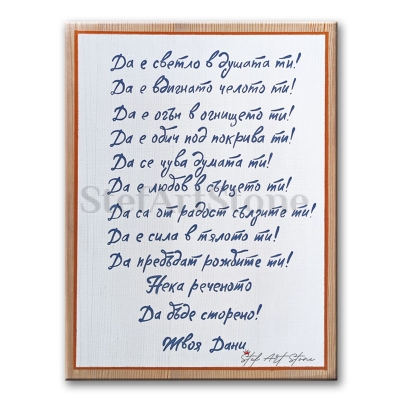 Да е светло в душата ти!
Да е вдигнато челото ти!
Да е огън в огнището ти!
Да е обич под покрива ти!
Да се чува думата ти!
Да е любов в сърцето ти!
StefArtStone
Да са от радост сълзите ти!
Да е сила в тялото ти!
Да предъдат рожбите ти!
Нека реченото
Да бъде сторено!
Твоя Дани
Stef Art Stone